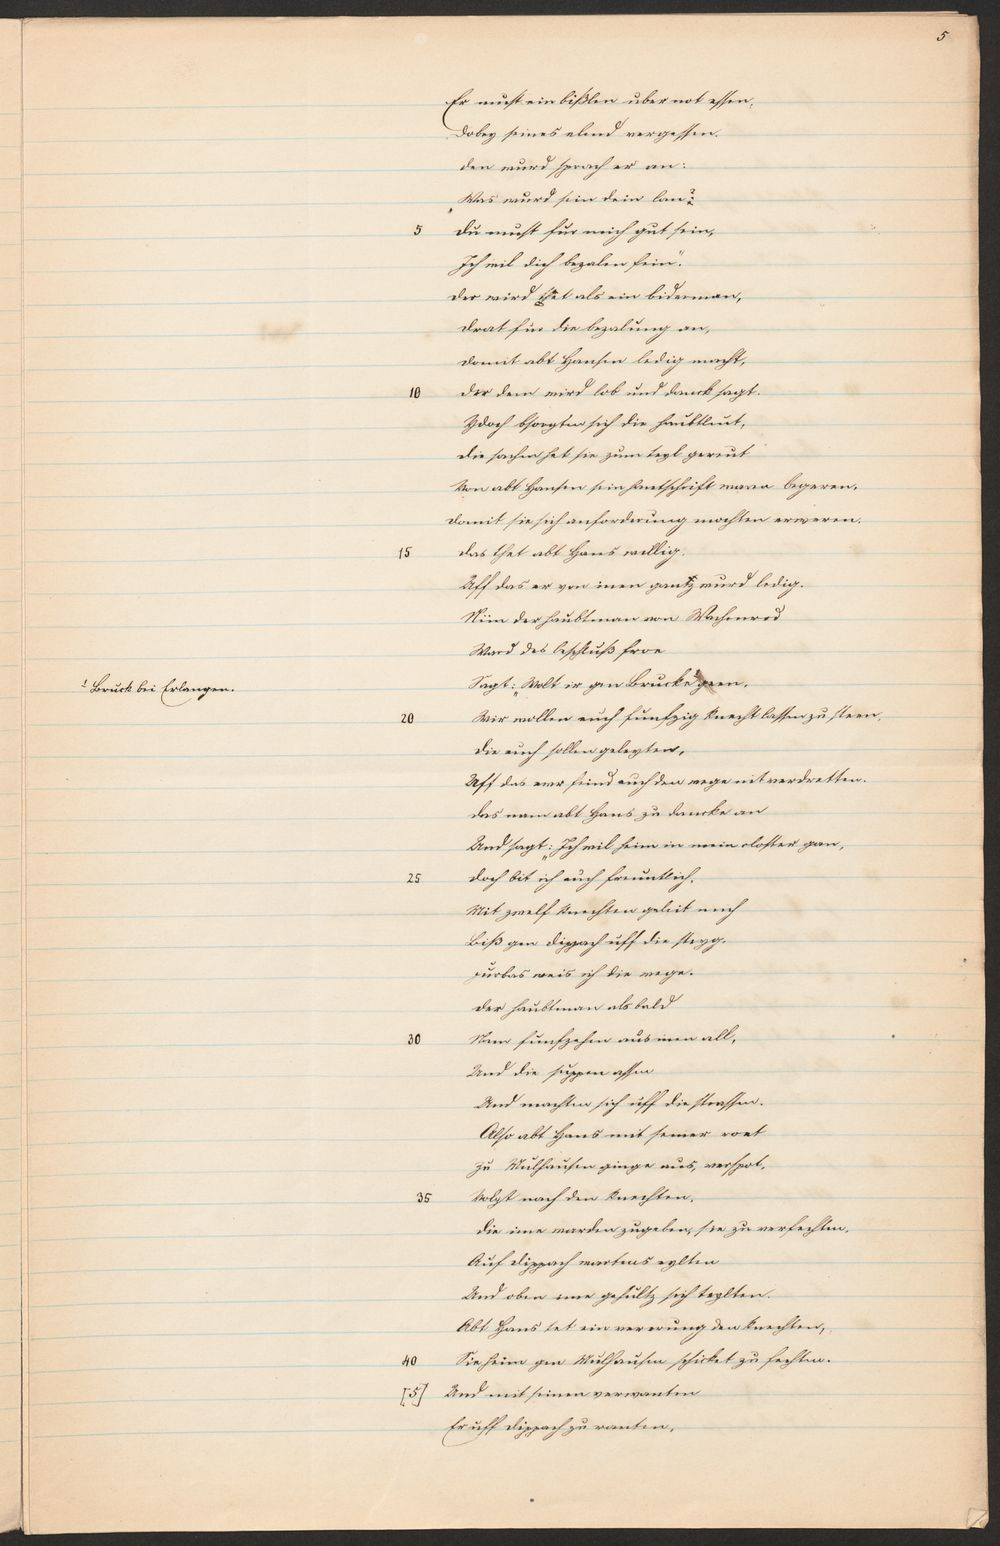 5
Er must ein bißlen uber not essen,
Dobey seines elend vergessen.
Den wurd sprach er an:
„Was wurd sein dein lan?
5 Du must fur mich gut sein,
Ich wil dich bezalen fein“.
Der wird thet als ein biderman,
Drat fur die bezalung an,
Domit abt Hansen ledig macht,
10 Der dem wird lob und danck sagt.
Ydoch bsorgten sich die haubtleut,
Die sachen het sie zum teyl gereut
Von abt Hansen sein hantschrift waren begeren,
Domit sie sich anforderung mochten erweren.
15 Das thet abt Hans willig,
Uff das er von inen gantz wurd ledig.
Nun der haubtman von Wachenrod
Ward des beschluß froe
Sagt: „Wolt ir gen Brucke¹ geen,
¹ Bruck bei Erlangen.
20 Wir wollen euch funfzig knecht lassen zu steen,
Die euch sollen geleyten,
Uff das euer feind euch den wege nit verdretten.
Das nam abt Hans zu dancke an
Und sagt: „Ich wil heim in mein closter gan,
25 Doch bit ich euch freuntlich,
Mit zwelf knechten geleit mich
Biß gen Dippach uff die steyg,
Furbas weis ich die wege.
Der haubtman als bald
30 Nam funfzehen aus inen all,
Und die suppen assen
Und machten sich uff die strassen.
Also abt Hans mit seiner rott
Zu Mulhausen ginge aus, verspot,
35 Volgt nach den knechten,
Die ime warden zugeben, sie zu verfechten,
Auf Dippach wartens eylten
Und oben ime gehultz sich teylten.
Abt Hans tet ein vererung den knechten,
40 Sie heim gen Mulhausen schicket zu fechten.
[5] Und mit seinen verwanten
Er uff Dippach zu wanten,